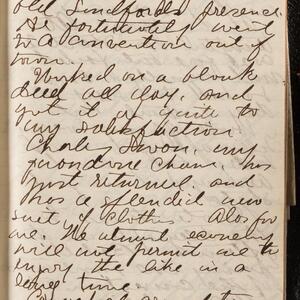 old Lindford's presence.
He fortunately went
to a convention out of
town.
Worked on a blank
deed all day, and
got it up quite to
my satisfaction.
Charley Swon, my
quondone chum, has
just returned, and
has a splendid new
suit of clothes. Alas for
me. The utmost economy
will not permit me to
enjoy the like in a
long time.